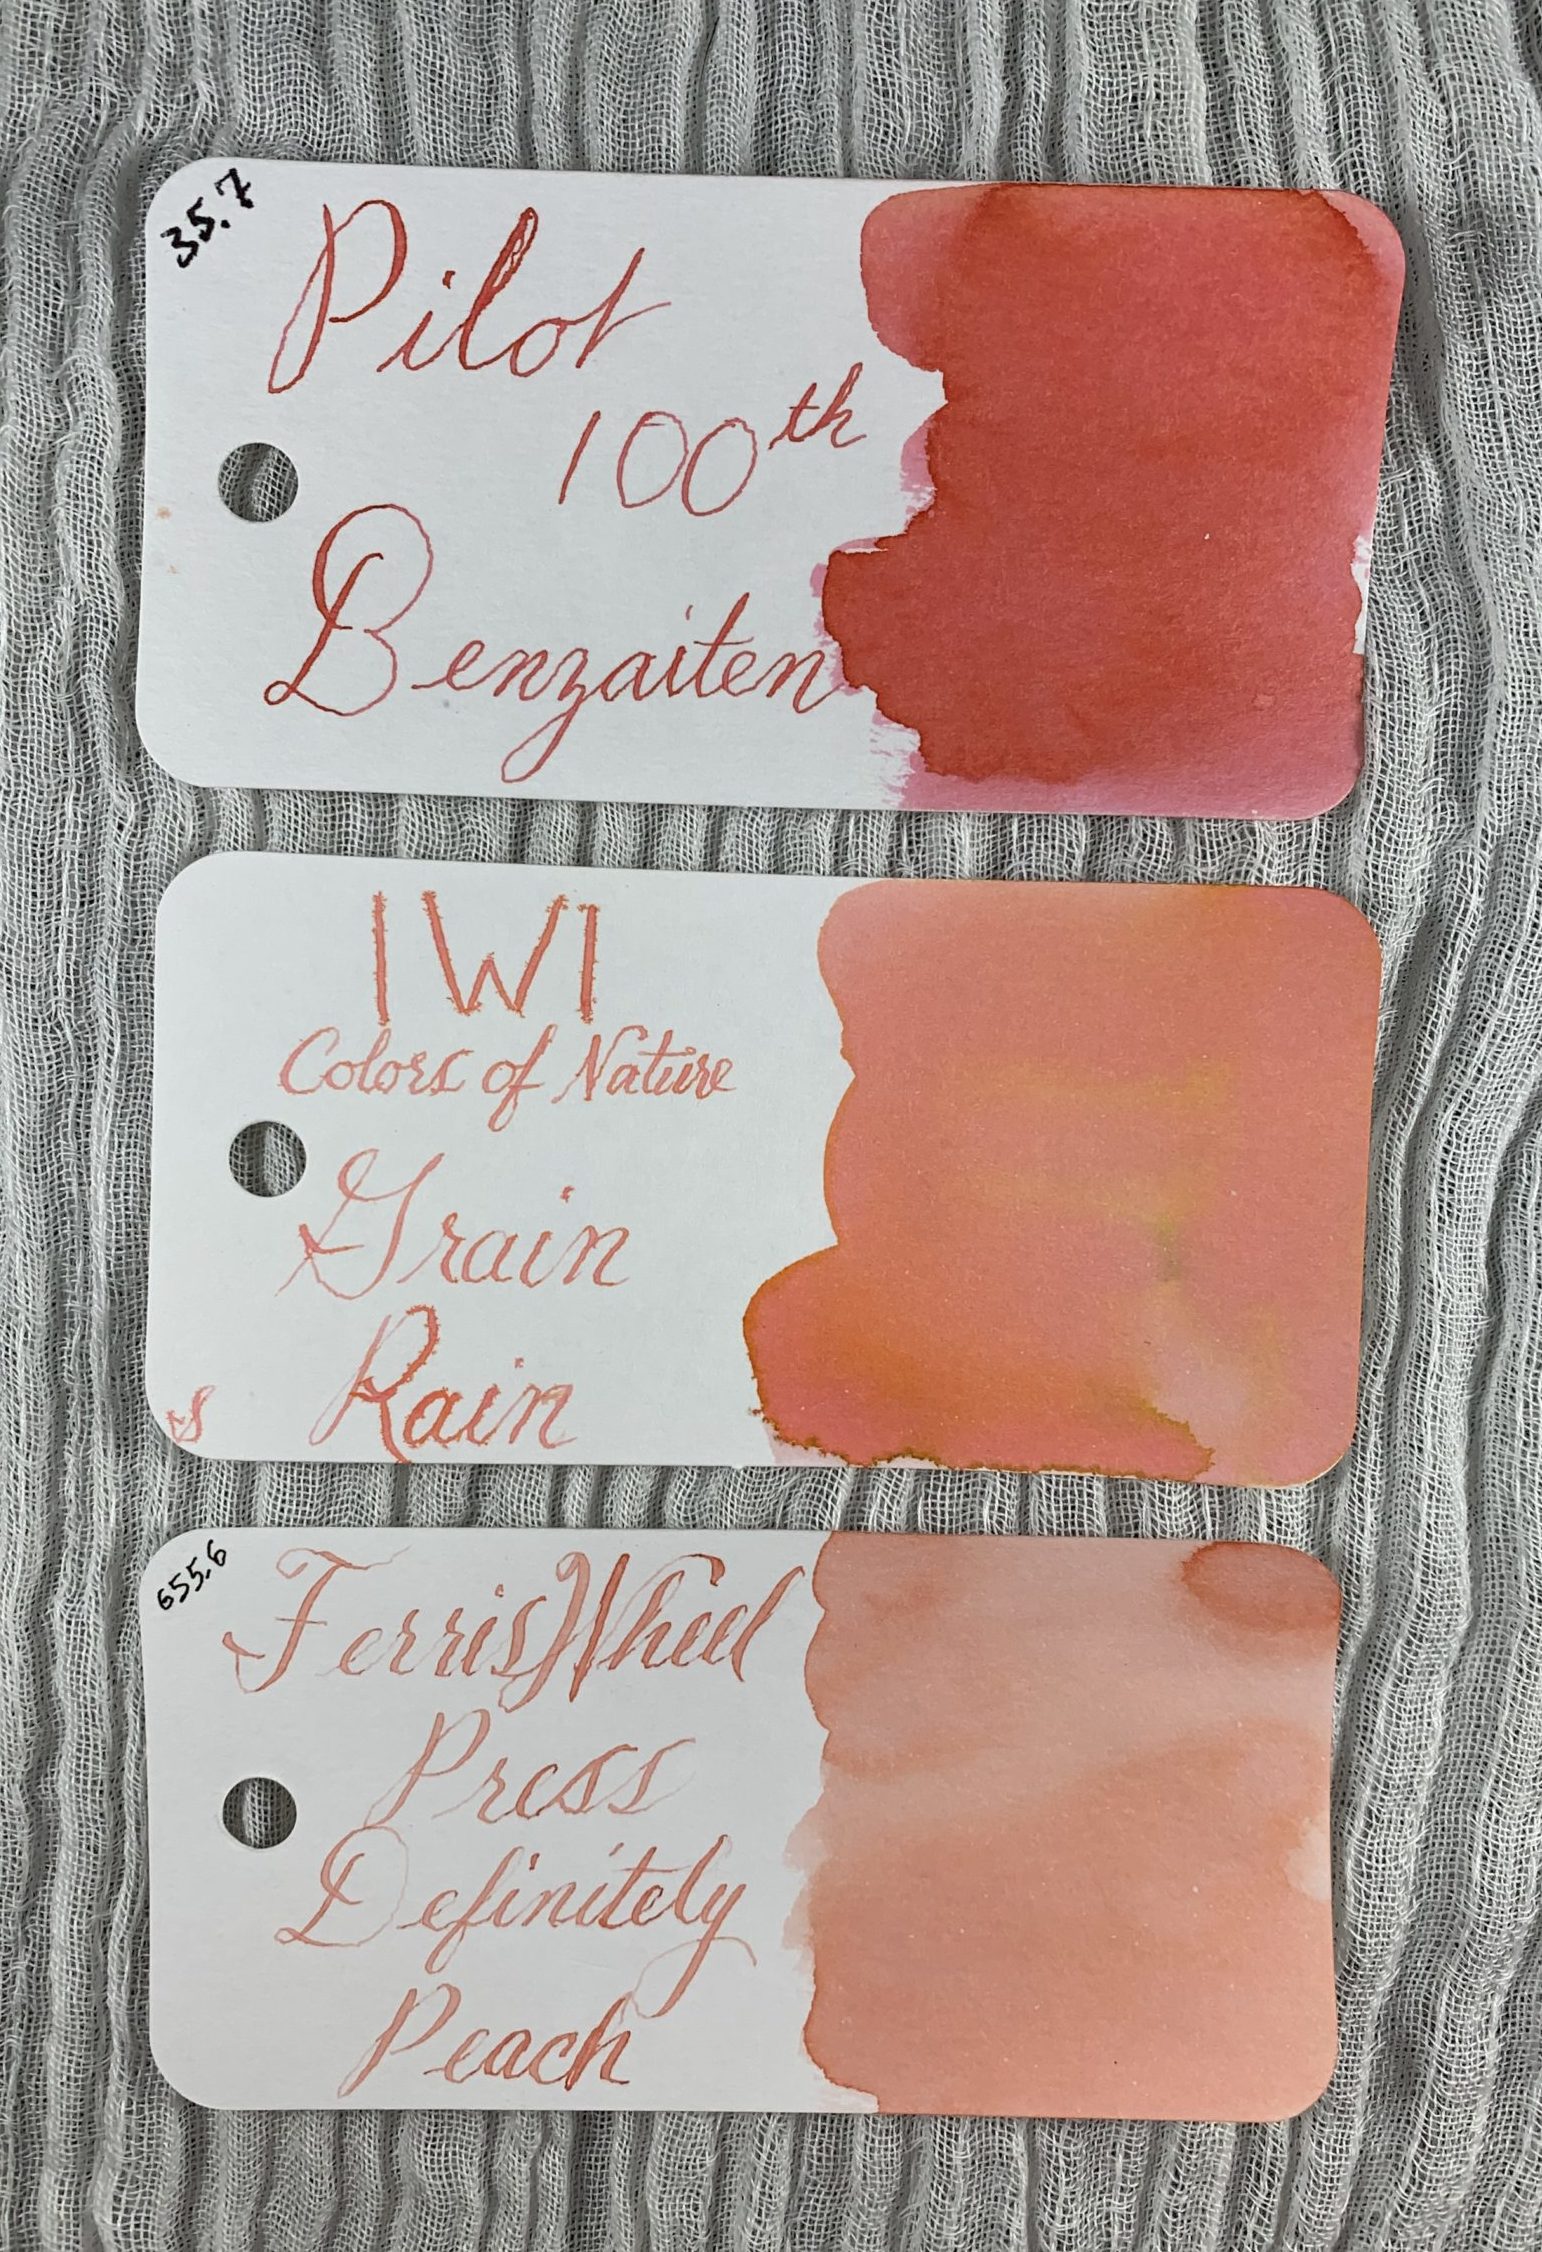 35.7
Pilot
100th
Benzaiten
IWI
Colors of Nature
Grain
Rain
s
655.6
Ferris Wheel
Press
Definitely
Peach